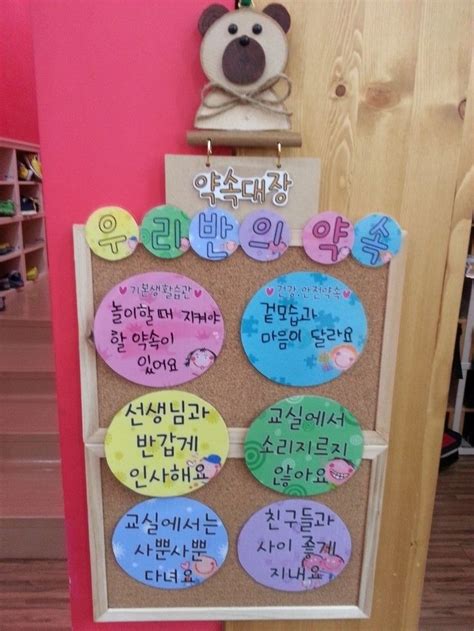 약속대장
우리반의 약속
기본생활습관
놀이할때 지켜야
할 약속이
있어요
건강.안전약속
겉모습과
마음이 달라요
선생님과
반갑게
인사해요
교실에서
소리지르지
않아요
교실에서는
사뿐사뿐
다녀요
친구들과
사이 좋게
지내요